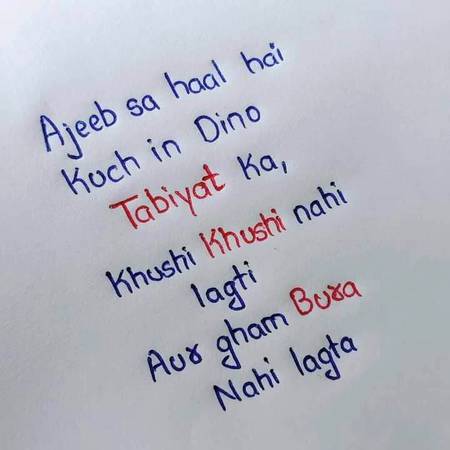 Ajeeb sa haal hai
Kuch in Dino
Tabiyat Ka,
Khushi Khushi nahi
lagti
Aur gham Bura
Nahi lagta